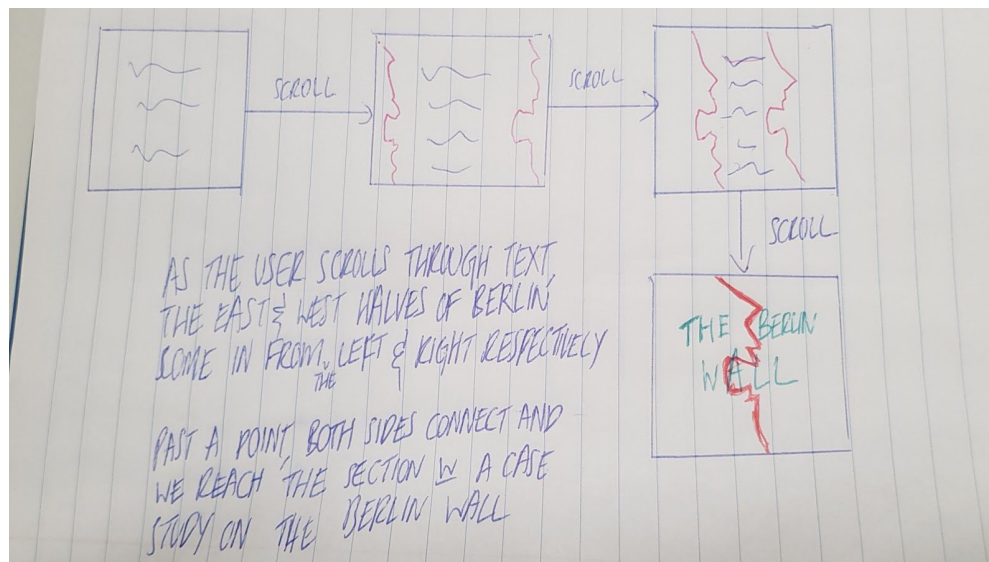 SCROLL
SCROLL
SCROLL
THE BERLIN
WALL
AS THE USER SCROLLS THROUGH TEXT,
THE EAST & WEST HALVES OF BERLIN
COME IN FROM THE LEFT & RIGHT RESPECTIVELY
PAST A POINT, BOTH SIDES CONNECT AND
WE REACH THE SECTION W A CASE
STUDY ON THE BERLIN WALL